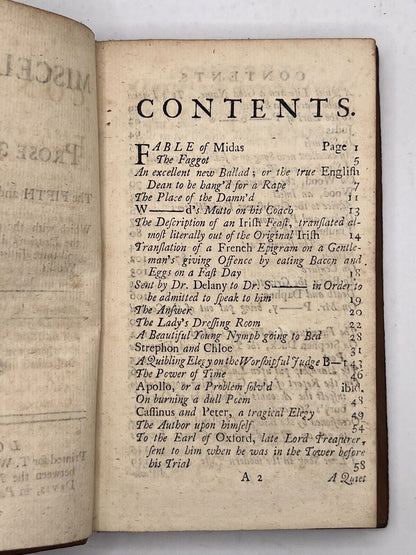 MISCEL
PROSE
The FIFTH and
CONTENTS.
FABLE of Midas Page 1
The Faggot 5
An excellent new Ballad; or the true English
Dean to be hang'd for a Rape 7
The Place of the Damn'd 11
W——d's Motto on his Coach 13
The Description of an Irish Feast, translated al-
most literally out of the Original Irish 14
Translation of a French Epigram on a Gentle-
man's giving Offence by eating Bacon and
Eggs on a Fast Day 18
Sent by Dr. Delany to Dr. S—— in Order to
be admitted to speak to him 19
The Answer 20
The Lady's Dressing Room 22
A Beautiful Young Nymph going to Bed 28
Strephon and Chloe 31
A Quibling Elegy on the Worshipful Judge B—t 43
The Power of Time
Apollo, or a Problem solv'd ibid.
On burning a dull Poem 48
Cassinus and Peter, a tragical Elegy 49
The Author upon himself 54
To the Earl of Oxford, late Lord Treasurer,
sent to him when he was in the Tower before
his Trial 58
A 2 A Quiet